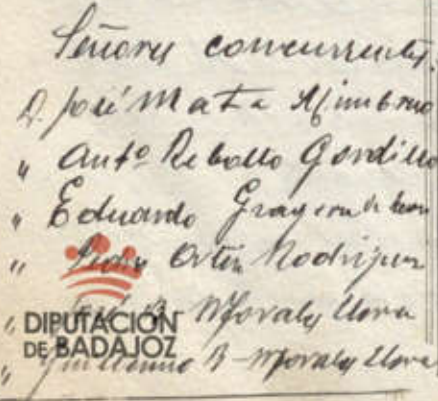 Señores concurrentes.
D. José Mata Mimbrero
" Antº Rebollo Gordillo
" Eduardo Gragera de León
" Ortiz Rodríguez
" José B-Morales Llera
" Guillermo B-Morales Llera
DIPUTACIÓN
DE BADAJOZ